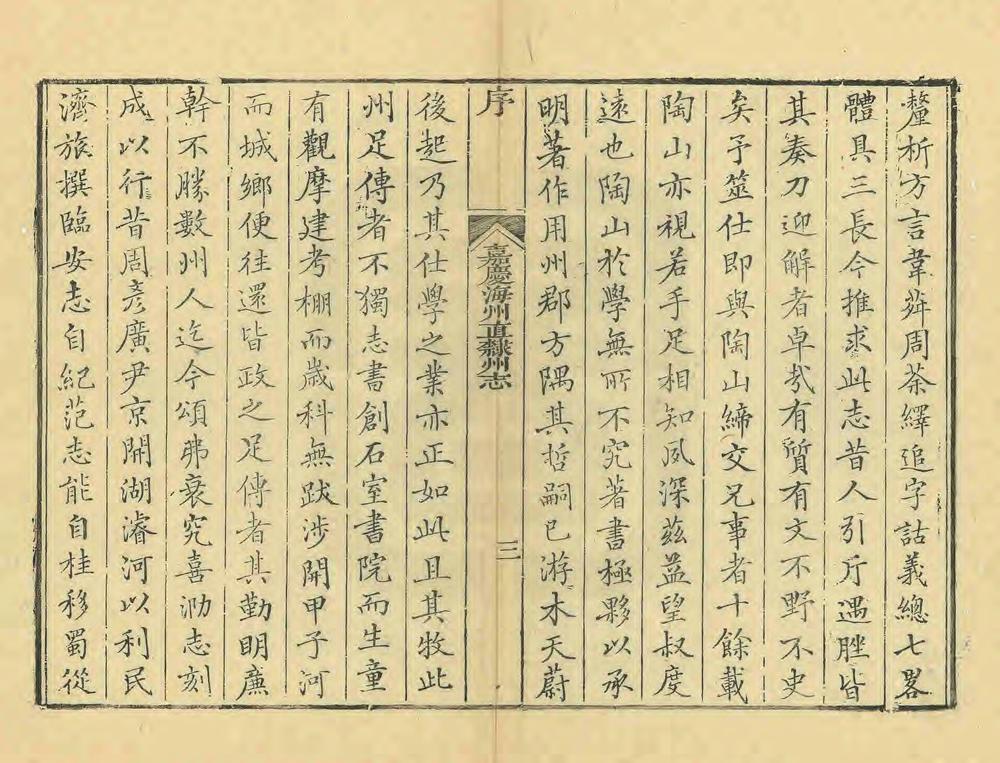 釐析方言韋舜周茶繹追字詁義總七畧
體具三長今推求此志昔人引斤遇䏶皆
其奏刀迎解者卓㢤有質有文不野不史
矣予筮仕即與陶山締交兄事者十餘載
陶山亦視若手足相知夙深茲益望叔度
遠也陶山於學無所不究著書極夥以承
明著作用州郡方隅其哲嗣已游木天蔚
序
嘉慶海州直隸州志
三
後起乃其仕學之業亦正如此且其牧此
州足傳者不獨志書創石室書院而生童
有觀摩建考棚而歲科無跋涉開甲子河
而城鄉便往還皆政之足傳者其勤明廉
幹不勝數州人迄今頌弗衰究喜泐志刻
成以行昔周彥廣尹京開湖濬河以利民
濟旅撰臨安志自紀范志能自桂移蜀從